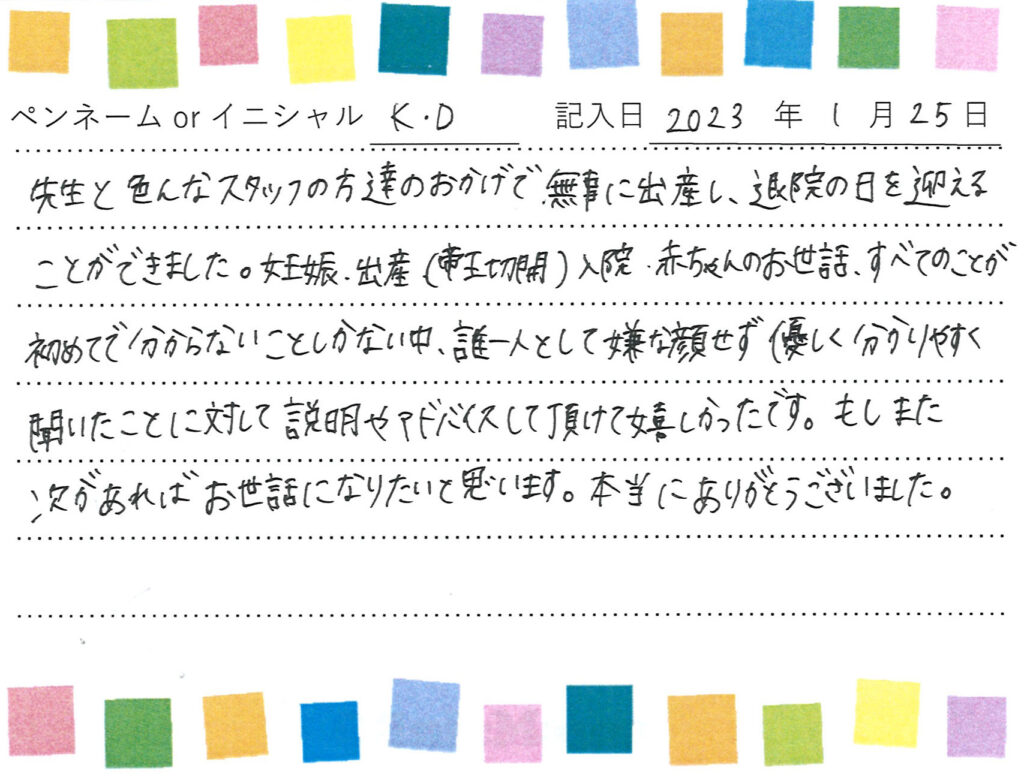 ペンネーム or イニシャル K・D 記入日 2023 年 1 月 25 日
先生と色んなスタッフの方達のおかげで無事に出産し、退院の日を迎える
ことができました。妊娠・出産(帝王切開)入院・赤ちゃんのお世話、すべてのことが
初めてで分からないことしかない中、誰一人として嫌な顔せず優しく分かりやすく
聞いたことに対して説明やアドバイスして頂けて嬉しかったです。もしまた
次があればお世話になりたいと思います。本当にありがとうございました。